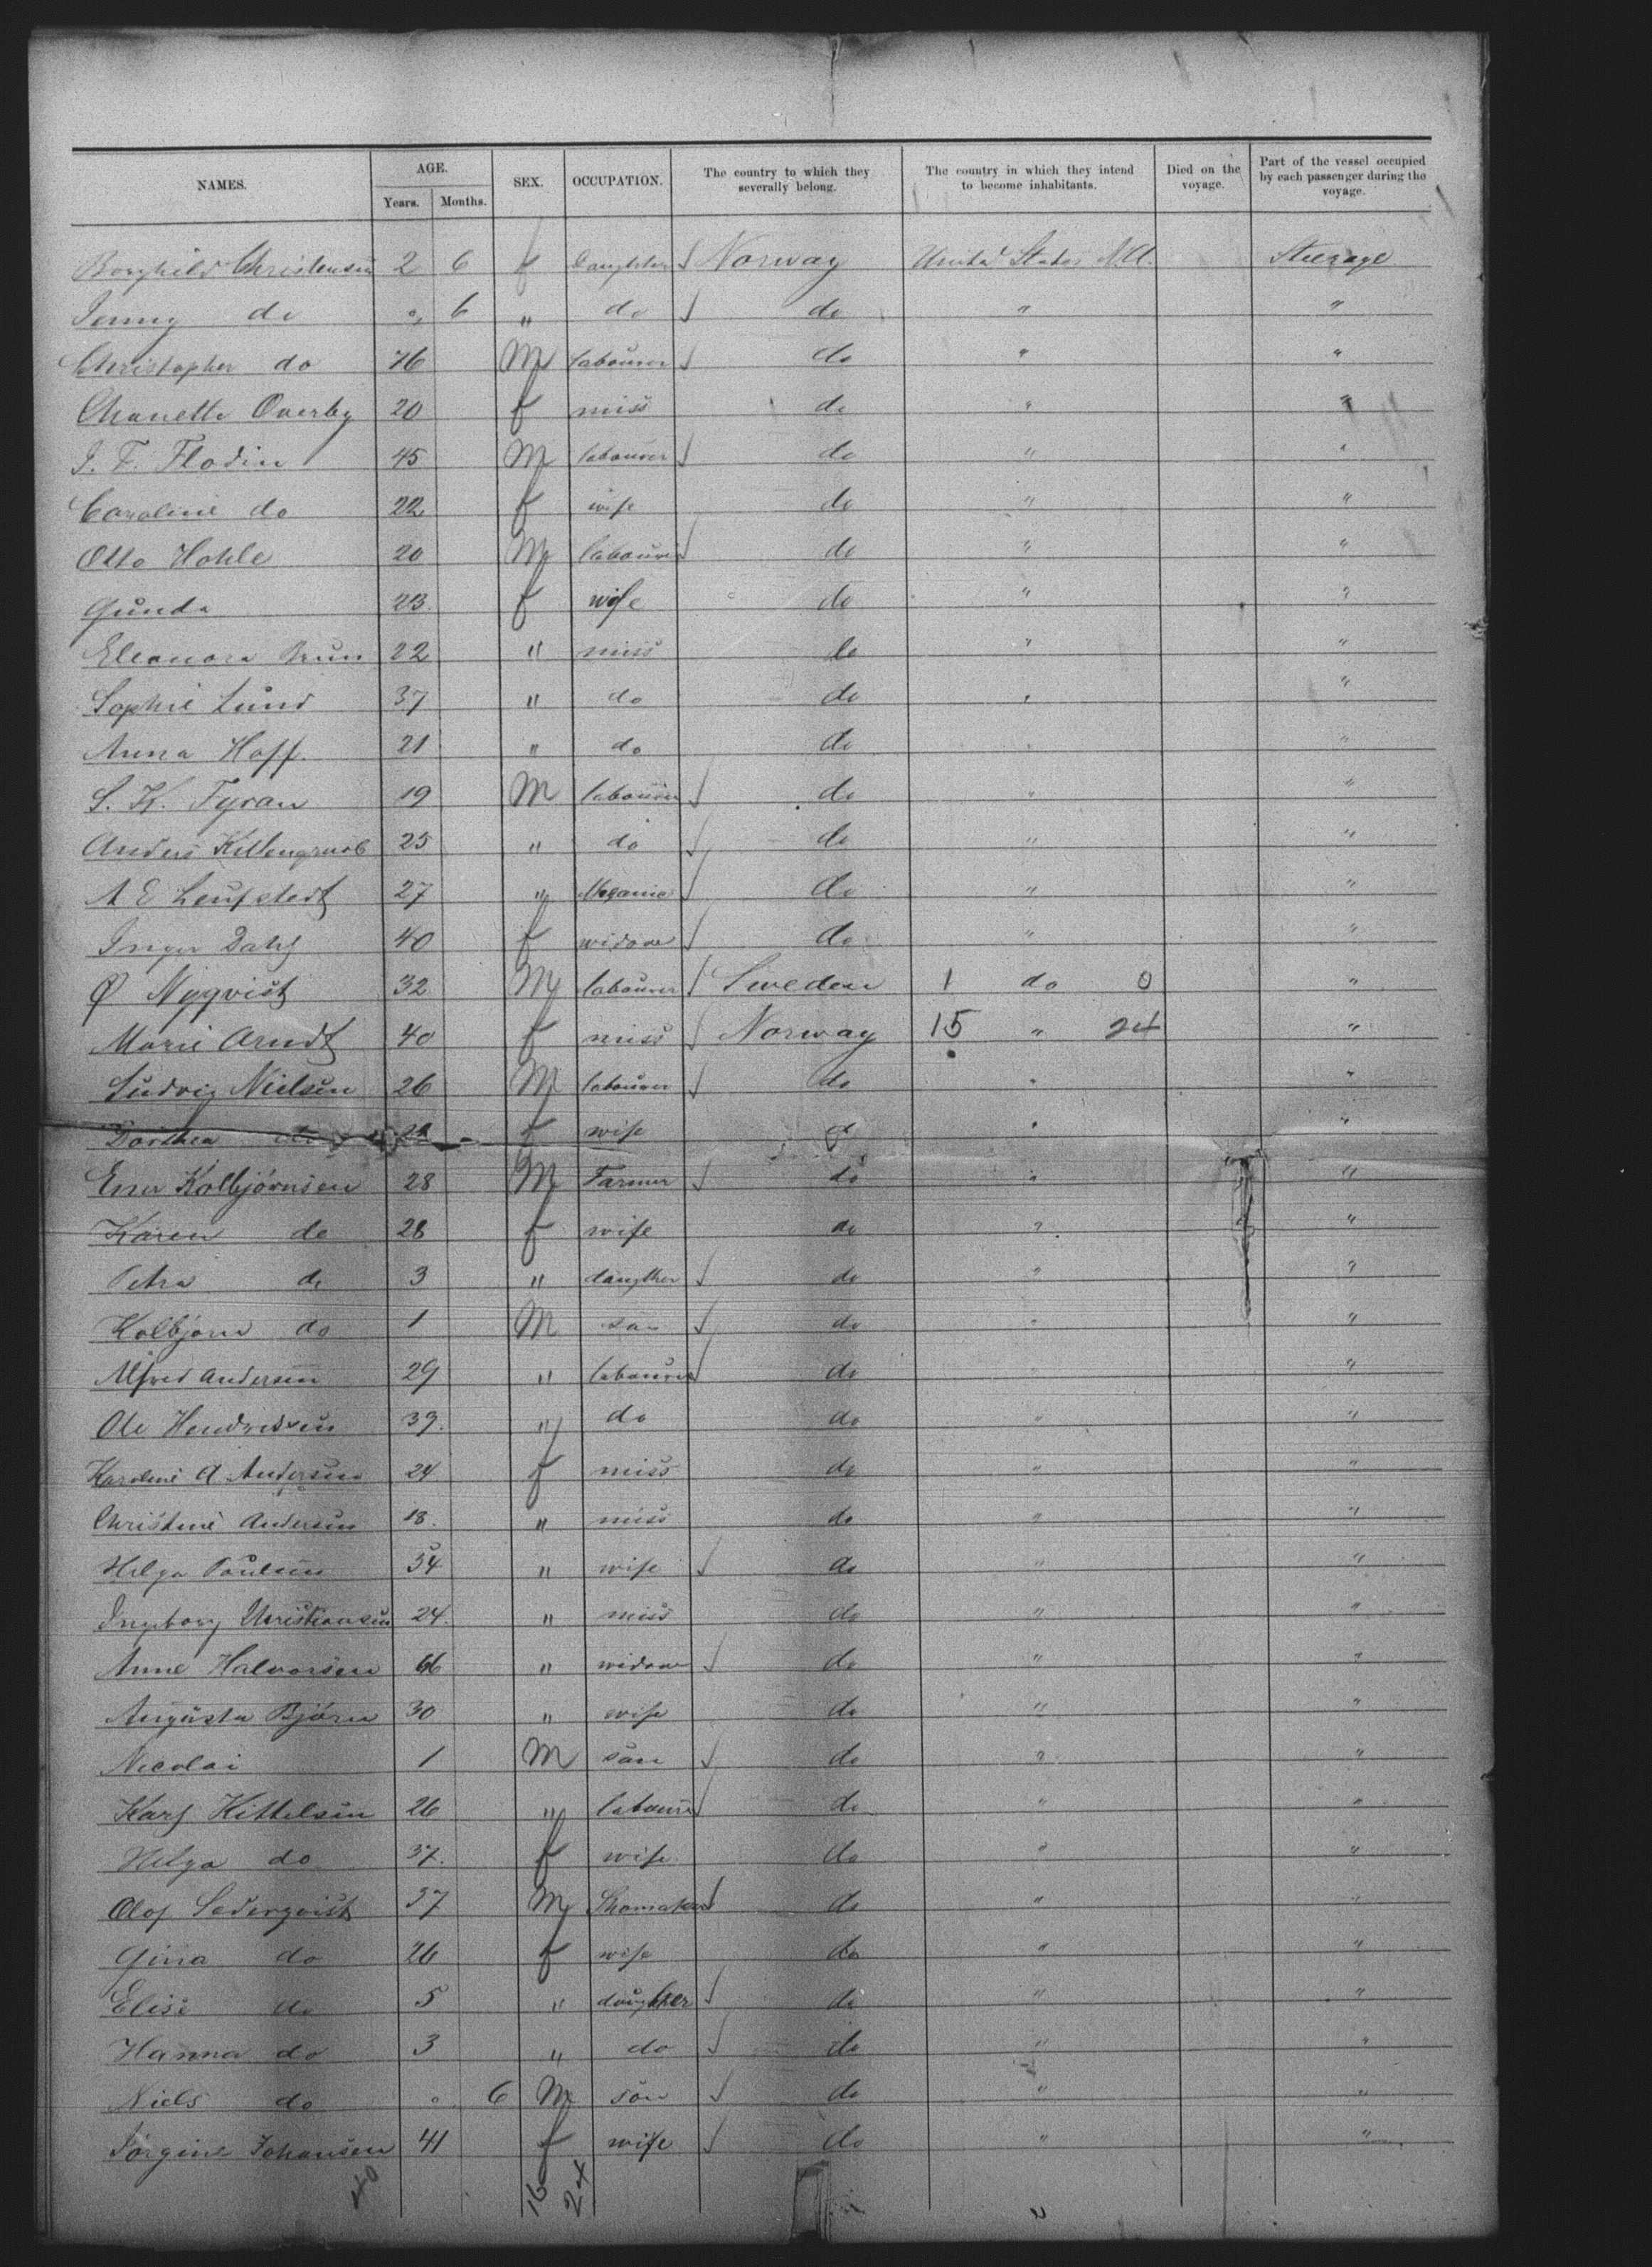 NAMES. AGE. SEX. OCCUPATION. The country to which they severally belong. The country in which they intend to become inhabitants. Died on the voyage. Part of the vessel occupied by each passenger during the voyage.
Years. Months.
Borghild Christensen 2 6 f daughter Norway United States N.A. Steerage
Jenny do " 6 " do do " "
Christopher do 76 M labourer do " "
Overby 20 f miss do " "
J. F. Flodin 45 M labourer do " "
Caroline do 22 f wife do " "
Otto Hohle 20 M labourer do " "
Gunda 23 f wife do " "
Eleonora Brun 22 " miss do " "
Sophie Lund 37 " do do " "
Anna Hoff 21 " do do " "
S. K. Tyran 19 M labourer do " "
Anders 25 " do do " "
A E 27 " do " "
Inger Dahl 40 f widow do " "
Ø Nyqvist 32 M labourer Sweden 1 do 0 "
Marie Arndt 40 f miss Norway 15 " 24 "
Ludvig Nielsen 26 M labourer do " "
Dorthea do f wife do " "
Kolbjörnsen 28 M Farmer do " "
Karen do 28 f wife do " "
Petra do 3 " daugther do " "
Kolbjorn do 1 M son do " "
Alfred Andersen 29 " labourer do " "
Ole Hendriksen 39 " do do " "
Karoline A Andersen 24 f miss do " "
Christine Andersen 18 " miss do " "
Helga Paulsen 34 " wife do " "
Ingeborg Christiansen 24 " miss do " "
Anne Halvorsen 66 " widow do " "
Augusta Björn 30 " wife do " "
Nicolai 1 M son do " "
Karl Kittelsen 26 " labourer do " "
Helga do 37 f wife do " "
Olof Sederqvist 37 M Shomaker do " "
Gina do 26 f wife do " "
Elise do 5 " daugther do " "
Hanna do 3 " do do " "
Niels do " 6 M son do " "
Jorgine Johansen 41 f wife do " "
40 16 24